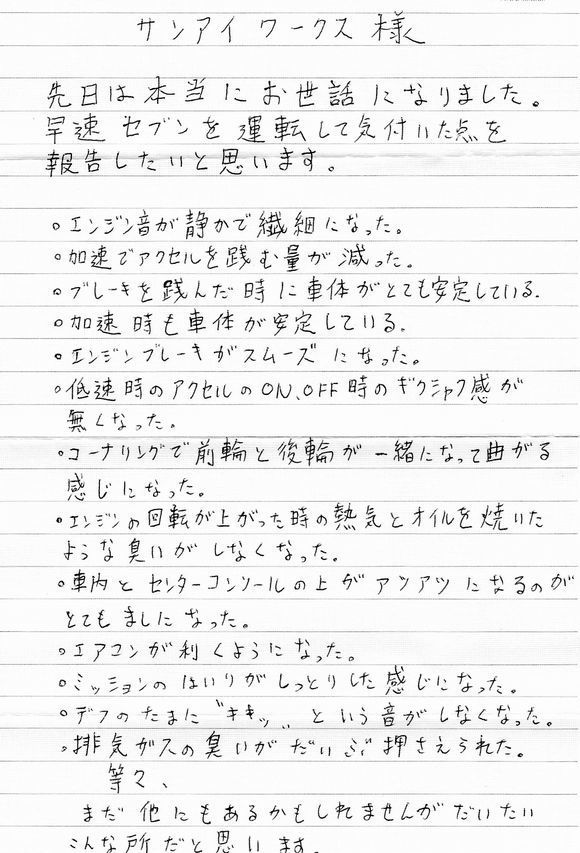 サンアイワークス様
先日は本当にお世話になりました。
早速セブンを運転して気付いた点を
報告したいと思います。
○エンジン音が静かで繊細になった。
○加速でアクセルを践む量が減った。
○ブレーキを践んだ時に車体がとても安定している.
○加速時も車体が安定している.
○エンジンブレーキがスムーズになった。
○低速時のアクセルのON、OFF時のギクシャク感が
無くなった。
○コーナリングで前輪と後輪が一緒になって曲がる
感じになった。
○エンジンの回転が上がった時の熱気とオイルを焼いた
ような臭いがしなくなった。
○車内とセンターコンソールの上がアツアツになるのが
とてもましになった。
○エアコンが利くようになった。
○ミッションのはいりがしっとりした感じになった。
○デフのたまに〝キキッ〟という音がしなくなった。
○排気ガスの臭いがだいぶ押さえられた。
等々、
まだ他にもあるかもしれませんがだいたい
こんな所だと思います。